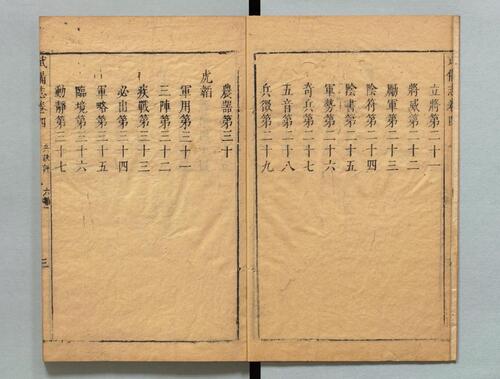 武備志卷四
立將第二十一
將威第二十二
勵軍第二十三
陰符第二十四
陰書第二十五
軍勢第二十六
奇兵第二十七
五音第二十八
兵徵第二十九
農器第三十
虎韜
軍用第三十一
三陣第三十二
疾戰第三十三
必出第三十四
軍略第三十五
臨境第三十六
動靜第三十七
武備志卷四
三